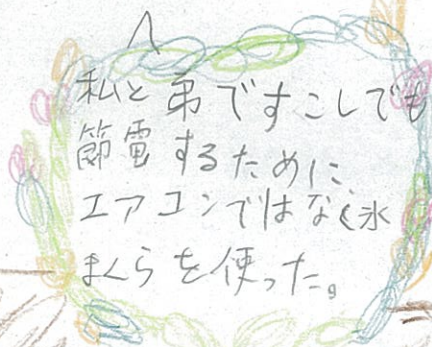 私と弟ですこしでも
節電するために、
エアコンではなく氷
まくらを使った。